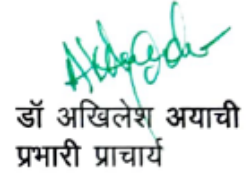 डॉ अखिलेश अयाची
प्रभारी प्राचार्य